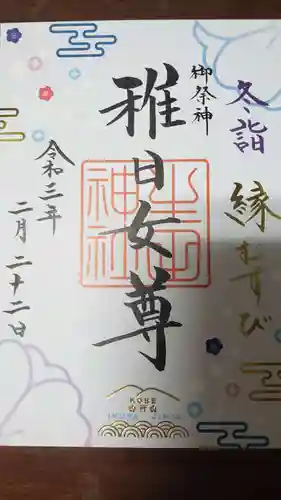 冬詣
縁むすび
御祭神
稚日女尊
生田神社
令和三年
二月二十二日
KOBE
IKUTA JINJA